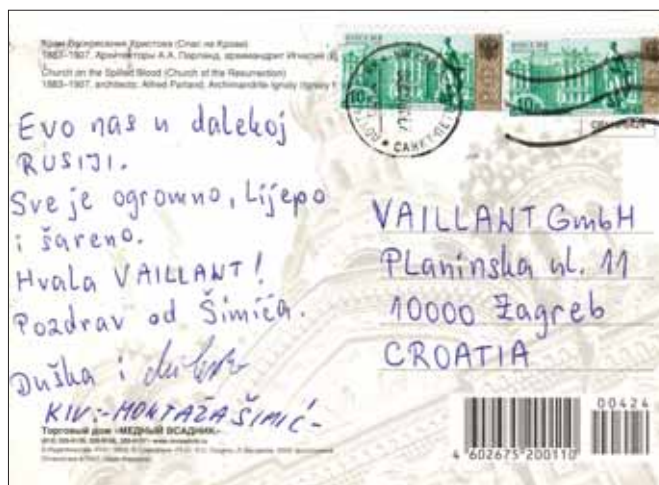 Храм Воскресения Христова (Спас на Крови)
1883–1907. Архитекторы А.А. Парланд, архимандрит Игнатий
Church on the Spilled Blood (Church of the Resurrection)
1883–1907, architects: Alfred Parland, Archimandrite Ignaty
РОССИЯ
РОССИЯ
10
10
САНКТ-ПЕ
Evo nas u dalekoj
RUSIJI.
Sve je ogromno, Lijepo
i šareno.
Hvala VAILLANT!
Pozdrav od Šimića.
Duška i
KIV:-MONTAŽA ŠIMIĆ-
VAILLANT GmbH
Planinska ul. 11
10000 Zagreb
CROATIA
Торговый дом «МЕДНЫЙ ВСАДНИК»
00424
4 602675 200110